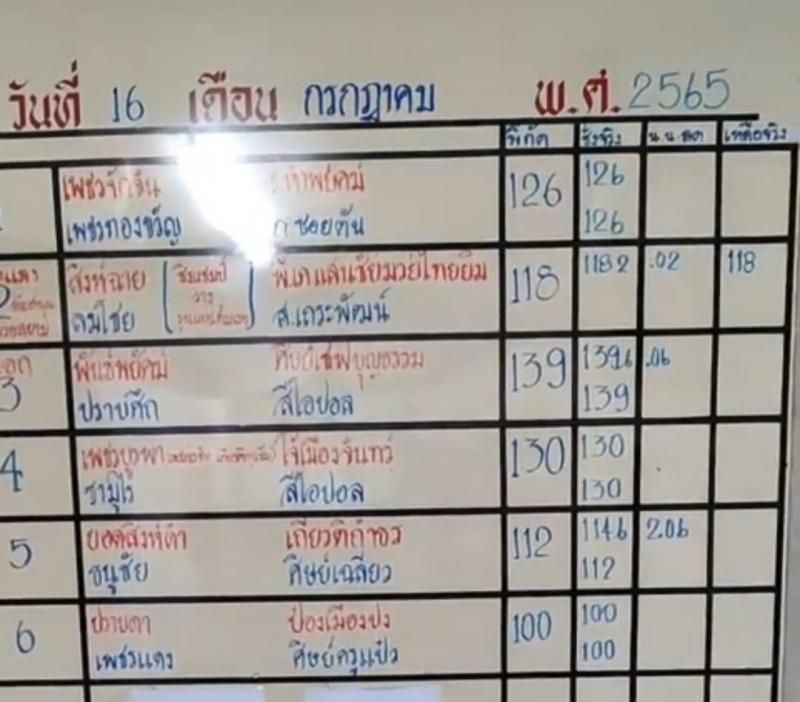 วันที่ 16 เดือน กรกฎาคม พ.ศ. 2565
พิกัด ชั่งจริง น.น.ลด เหลือจริง
เพชรจักจั่น 126 126
เพชรทองขวัญ ซอยตัน 126
สิงห์ฉาย พี.เค.แสนชัยมวยไทยยิม 118 118 2 .02 118
คมไชย ส.เถระพัฒน์
3 พันธ์พยัคฆ์ ศิษย์เชฟบุญธรรม 139 139.6 .06
ปราบศึก สีโอปอล 139
4 เพชรบูรพา โจ้เมืองจันทร์ 130 130
ซามูไร สีโอปอล 130
5 ยอดสิงห์ดำ เกียรติกำธร 112 114.6 2.06
ธนูชัย ศิษย์เฉลียว 112
6 ปราบดา ป๋องเมืองปง 100 100
เพชรแดง ศิษย์ครูแป๋ว 100